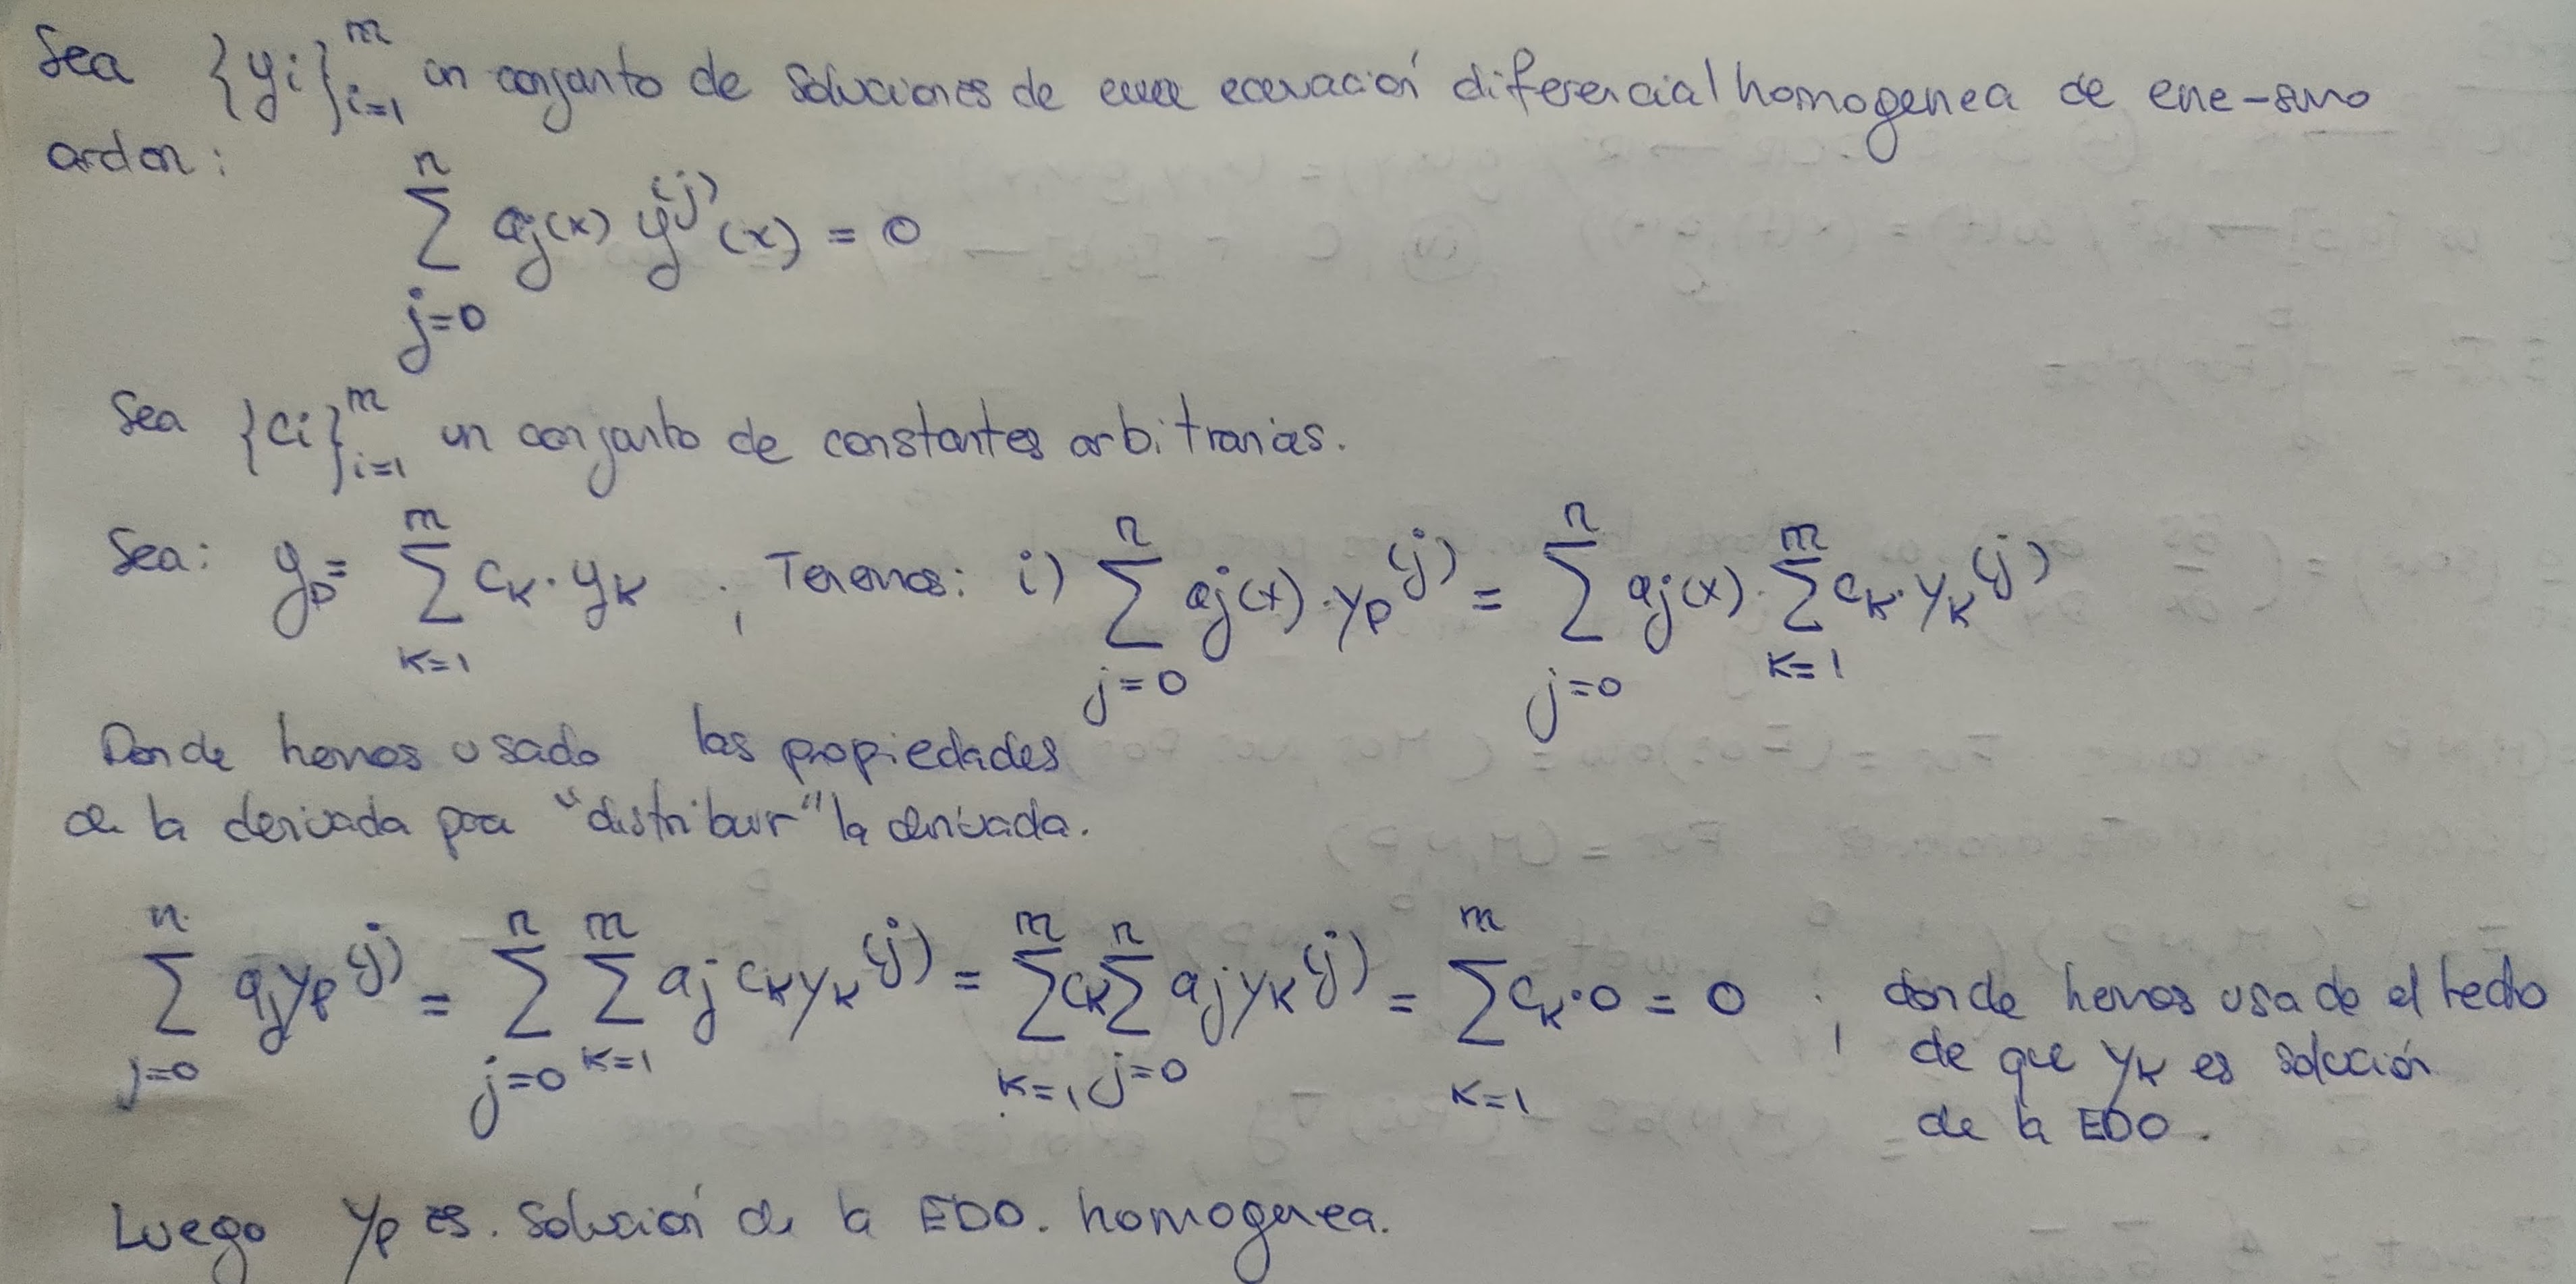 Sea {yi}_{i=1}^{m} un conjunto de soluciones de una ecuación diferencial homogenea de ene-simo
orden:
\sum_{j=0}^{n} aj(x) y^{(j)}(x) = 0
Sea {ci}_{i=1}^{m} un conjunto de constantes arbitrarias.
Sea: y_p = \sum_{k=1}^{m} c_k · y_k ; Tenemos: i) \sum_{j=0}^{n} aj(x) · y_p^{(j)} = \sum_{j=0}^{n} aj(x) · \sum_{k=1}^{m} c_k · y_k^{(j)}
Donde hemos usado las propiedades
de la derivada para "distribuir" la derivada.
\sum_{j=0}^{n} a_j y_p^{(j)} = \sum_{j=0}^{n} \sum_{k=1}^{m} a_j c_k y_k^{(j)} = \sum_{k=1}^{m} c_k \sum_{j=0}^{n} a_j y_k^{(j)} = \sum_{k=1}^{m} c_k · 0 = 0 ; donde hemos usado el hecho
de que y_k es solución
de la EDO.
Luego y_p es. solución de la EDO. homogenea.